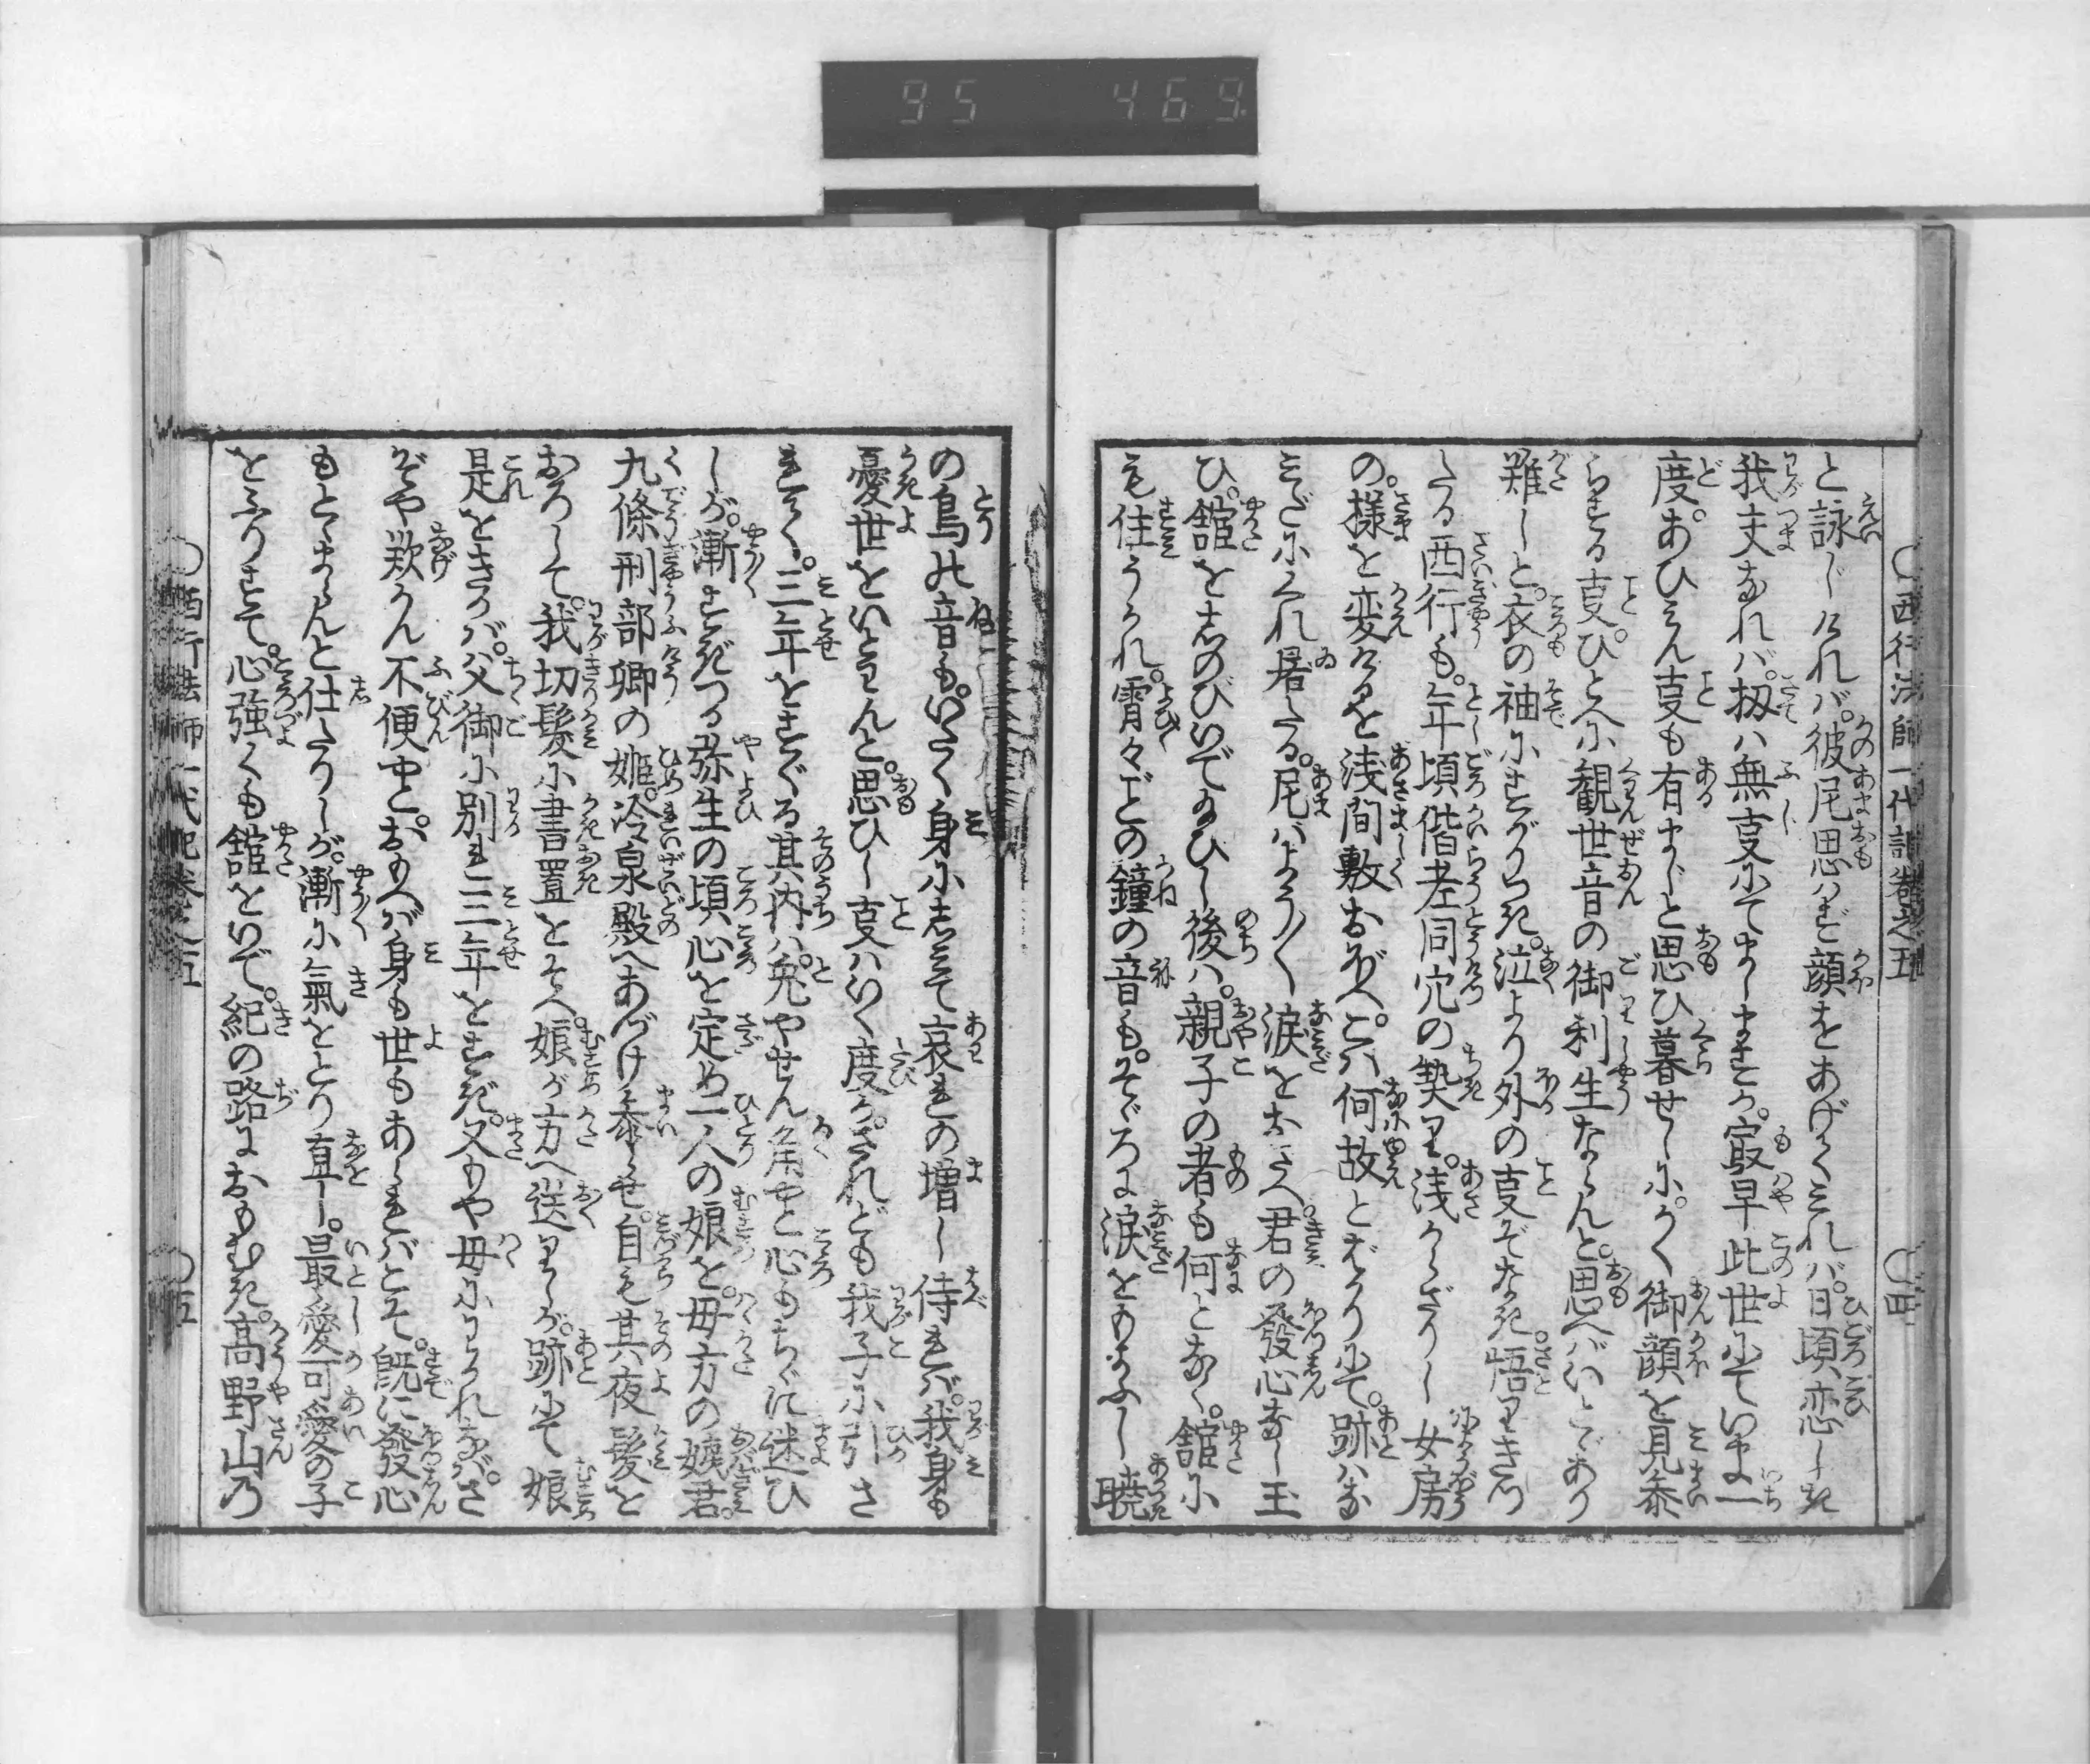 95 469
西行法師一代記巻之五
四
と詠じければ。彼尼思はず顔をあげてみれば。日頃恋しき
我夫なれば。扨は無事にてましませるか。最早此世にていま一
度。あひみん事も有まじと思ひ暮せしに。かく御顔を見奉
らする事。ひとへに観世音の御利生ならんと。思へばいとゞあり
難しと。衣の袖にすがりつき。泣より外の事ぞなき。悟りきつ
たる西行も。年頃偕老同穴の契り。浅からざりし女房
の。様を変けるを浅間敷おぼへ。こハ何故とばかりにて。跡ハな
みだにくれ居たる。尼はよう〳〵涙をおさへ。君の発心なし玉
ひ。舘をしのびいで給ひし後ハ。親子の者も何となく。舘に
も住うかれ。宵々ごとの鐘の音も。そゞろに涙をもよふし暁
の鳥の音も。いたく身にしみて哀れの増し侍れば。我身も
憂世をいとはんと。思ひし事ハいく度か。されども我子に引さ
れて。三年をすぐる其内ハ。兎やせん角やと心もちゞに迷ひ
しが。漸すぎつる弥生の頃心を定め一人の娘を。母方の姨君。
九條刑部卿の姫。冷泉殿へあづけ参らせ。自も其夜髪を
おろして。我切髪に書置をそへ。娘が方へ送りしが。跡にて娘
是をきかば。父御に別れ三年をすぎ。又もや母にわかれなば。さ
ぞや歎かん不便やと。おもへば身も世もあられバこそ。既に発心
もとゞまらんと仕たりしが。漸に氣をとり直し。最愛可愛の子
をふりすて。心強くも舘をいで。紀の路におもむき。高野山乃
西行法師一代記巻之五
五